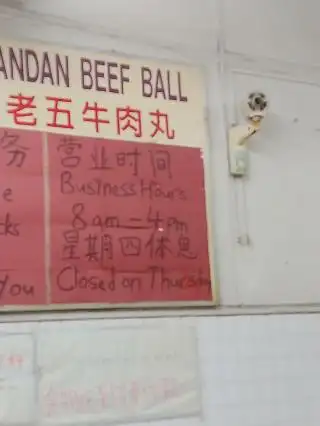 ANDAN BEEF BALL
老五牛肉丸
务 营业时间
e Business Hours
cks 8am - 4pm
星期四休息
You Closed on Thursday